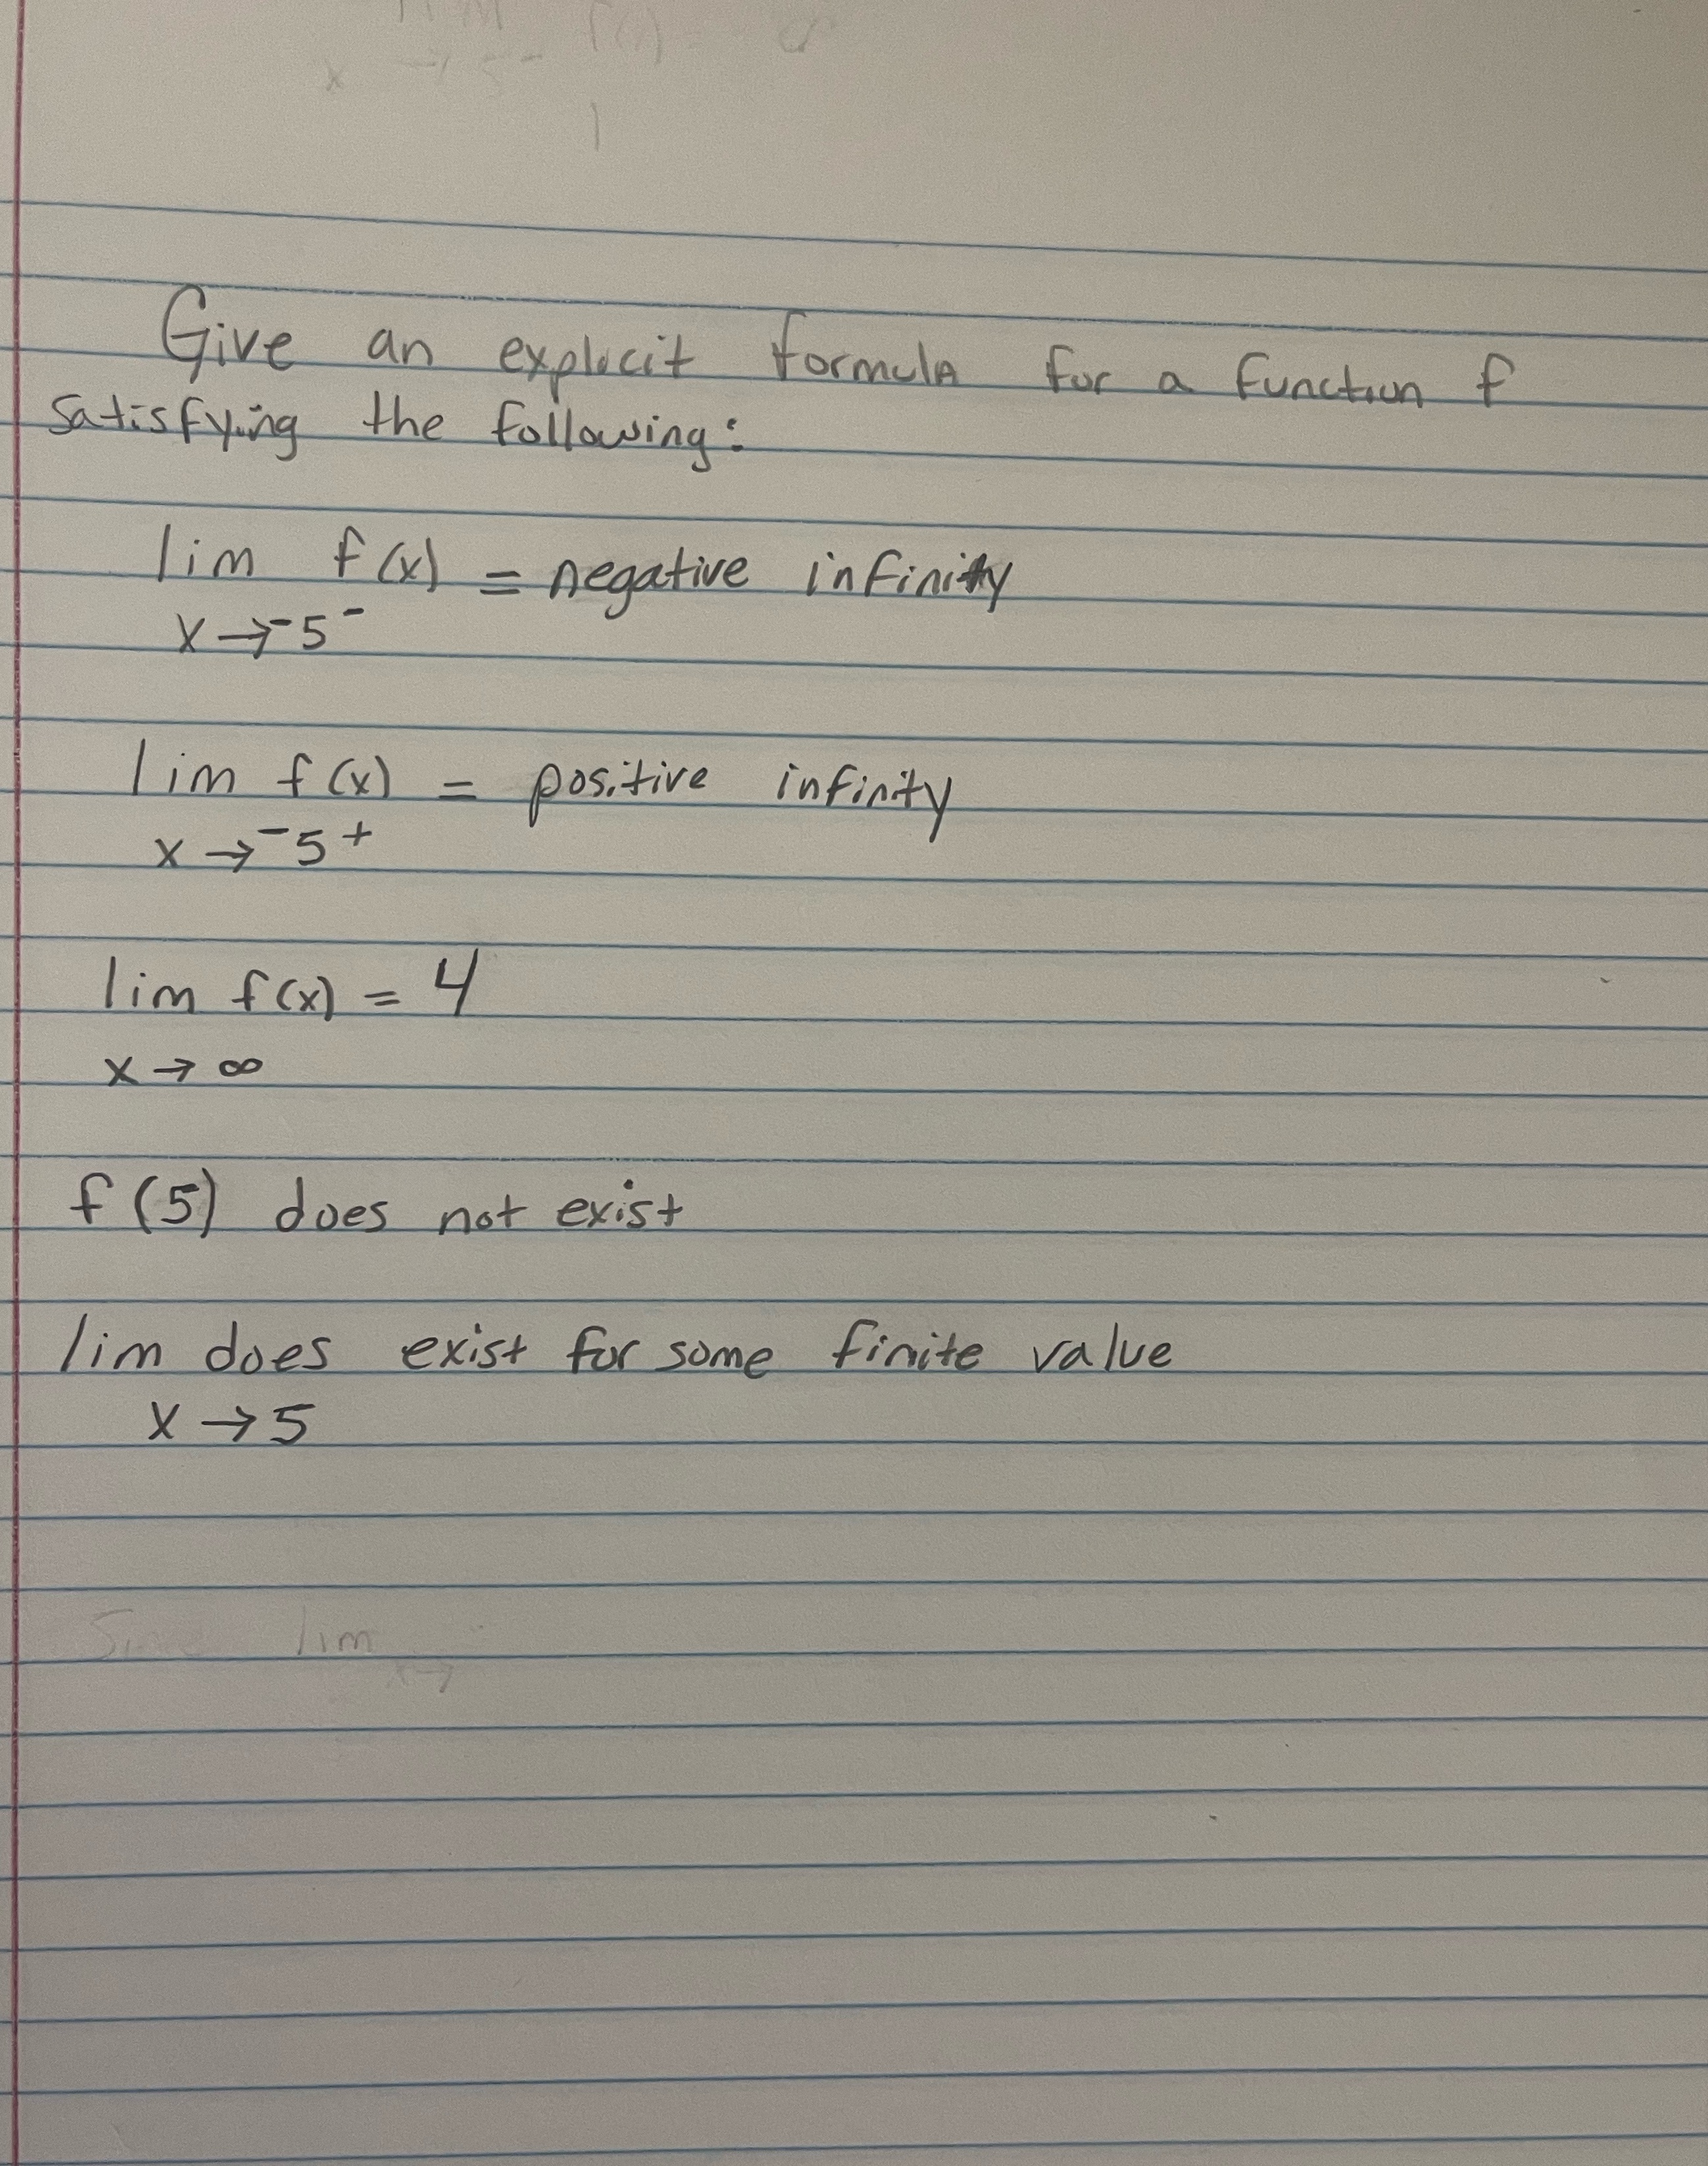 lim f(x) =
x → 5⁻
Give an explicit formula for a function f
satisfying the following:
lim f(x) = negative infinity
x → ⁻5⁻
lim f(x) = positive infinity
x → ⁻5⁺
lim f(x) = 4
x → ∞
f(5) does not exist
lim does exist for some finite value
x → 5
lim
x →